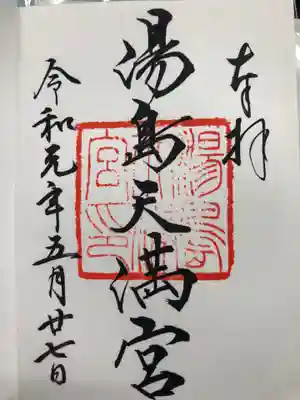 奉拝
湯島天満宮
令和元年五月廿七日